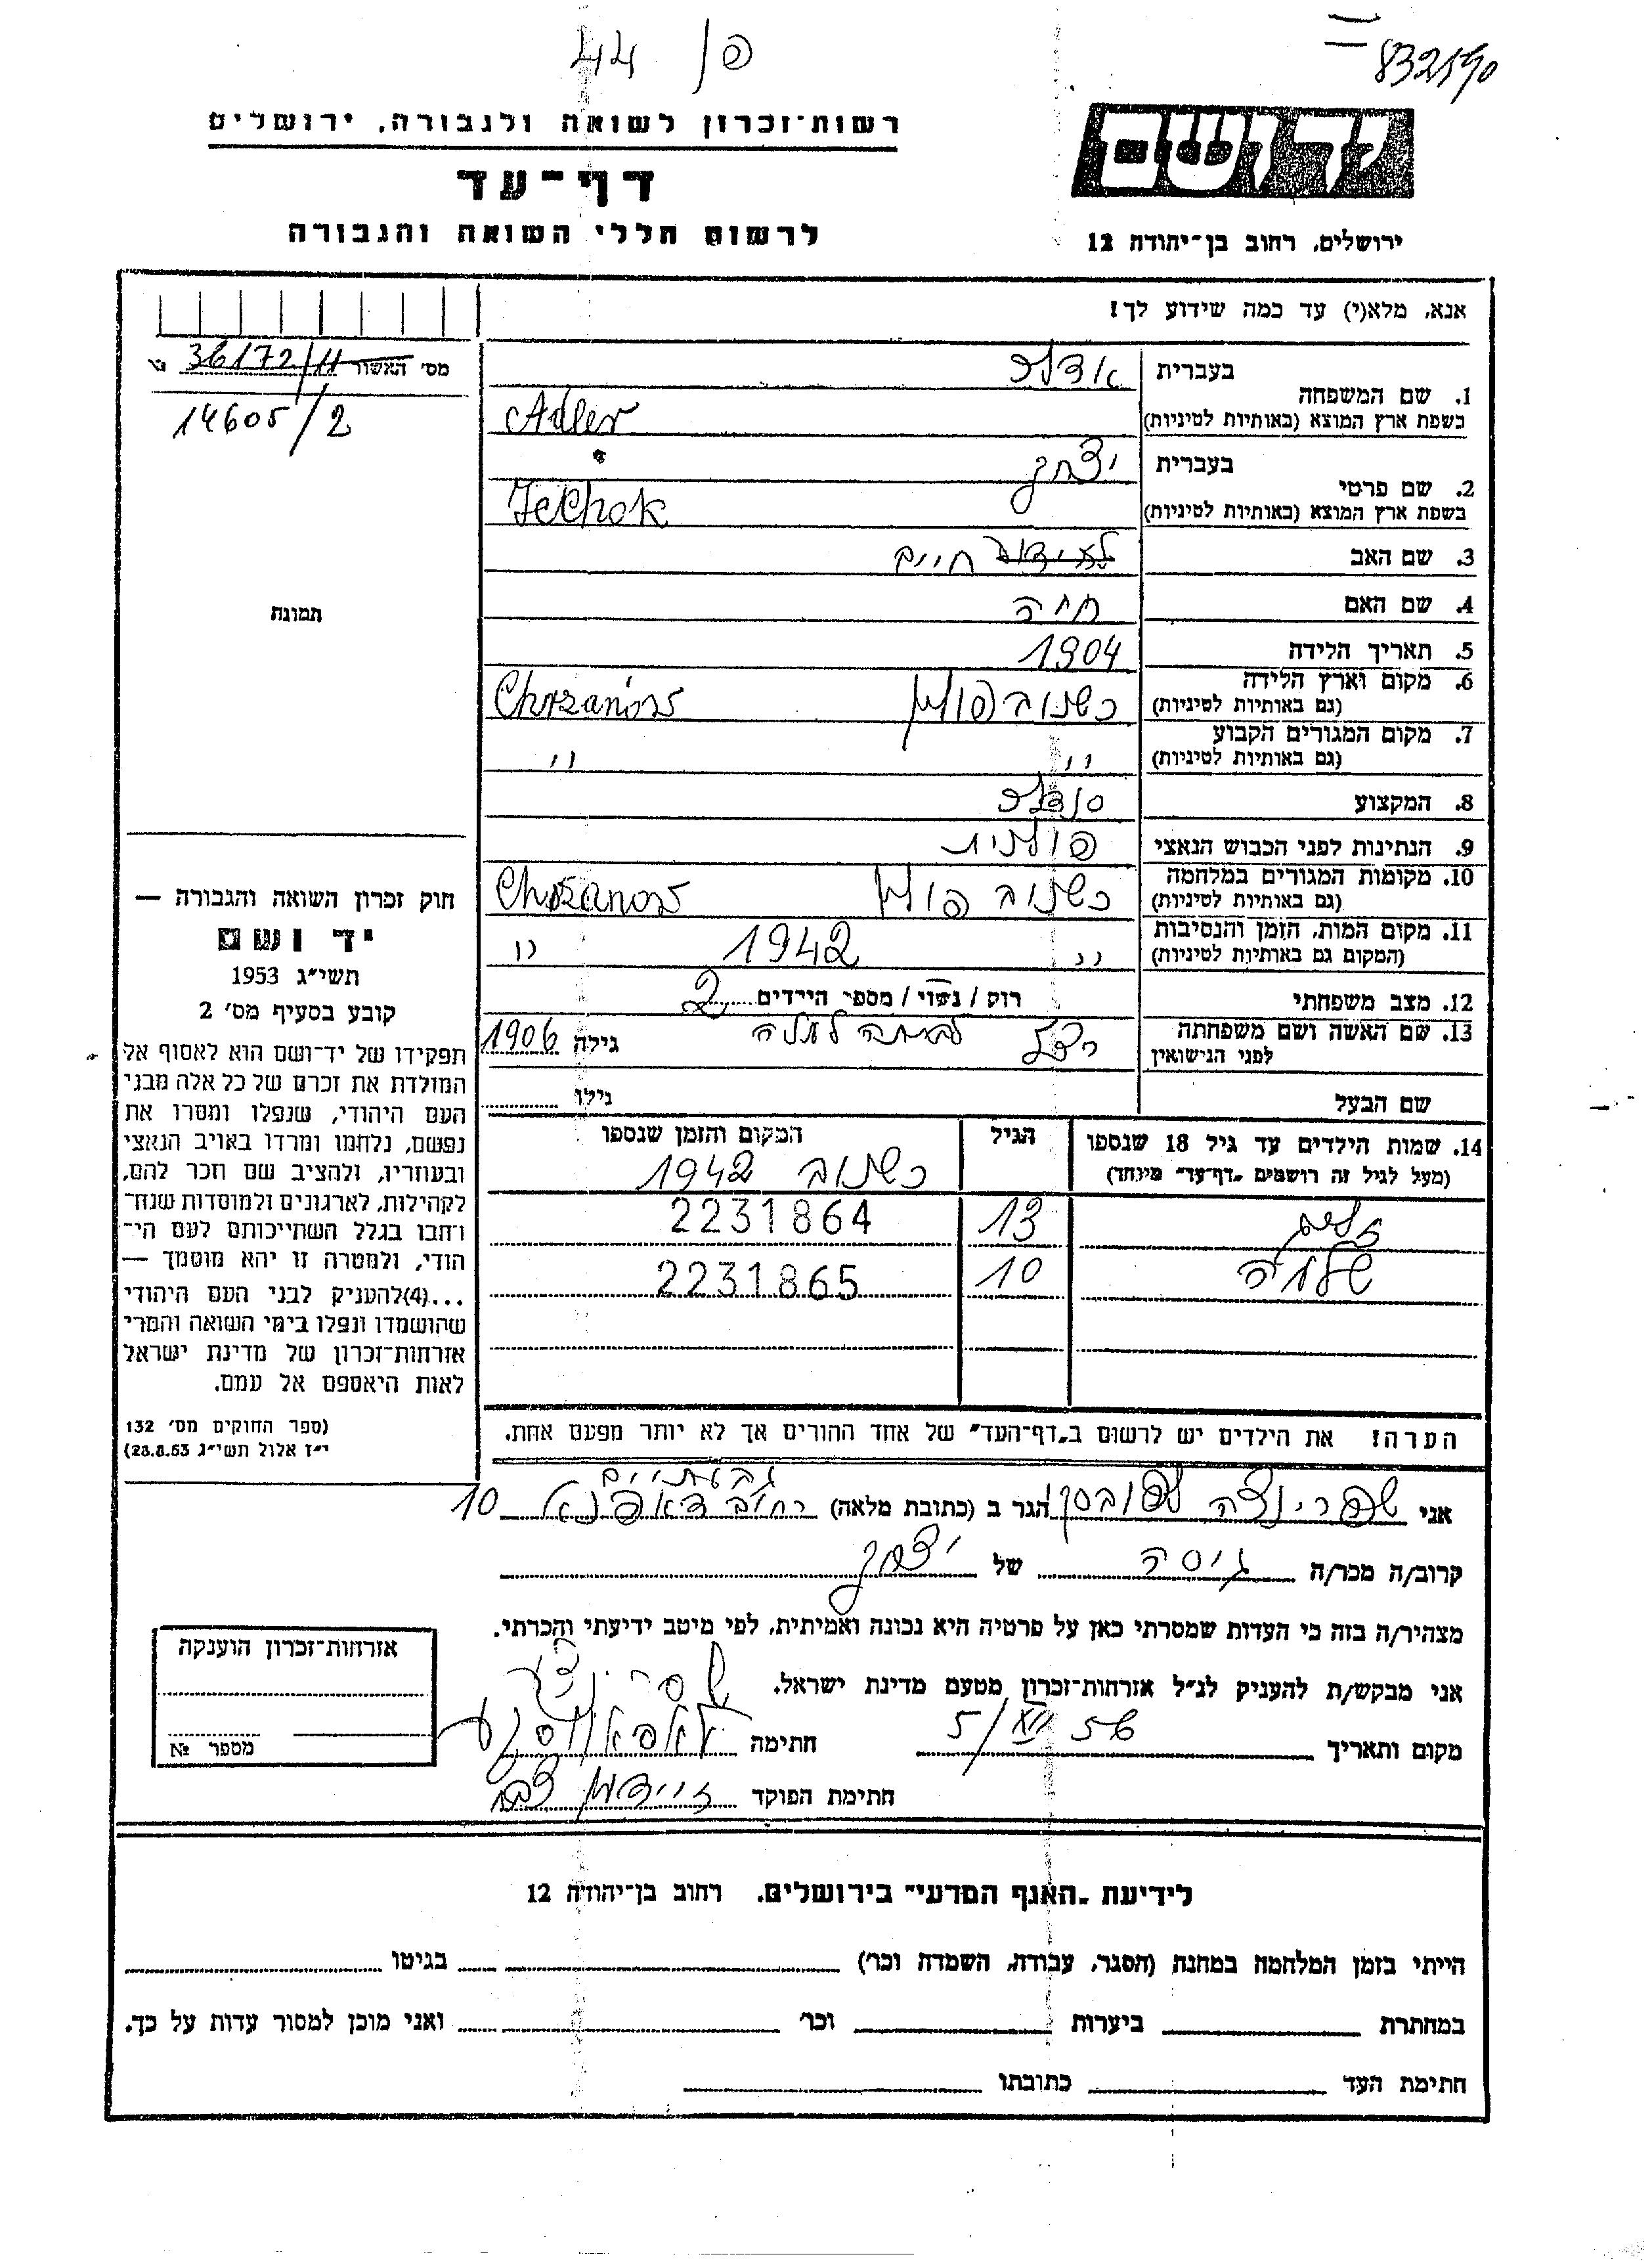 פ/ 44
832190
יד ושם
ירושלים, רחוב בן־יהודה 12
רשות־זכרון לשואה ולגבורה, ירושלים
דף־עד
לרשום חללי השואה והגבורה
אנא, מלא(י) עד כמה שידוע לך!
מס׳ האשור 36172/11
14605/2
תמונה
1. שם המשפחה בעברית אדלר
בשפת ארץ המוצא (באותיות לטיניות) Adler
2. שם פרטי בעברית יצחק
בשפת ארץ המוצא (באותיות לטיניות) Iechok
3. שם האב חיים
4. שם האם חיה
5. תאריך הלידה 1904
6. מקום וארץ הלידה כשנוב פולין Chrzanów
(גם באותיות לטיניות)
7. מקום המגורים הקבוע " "
(גם באותיות לטיניות)
8. המקצוע סנדלר
9. הנתינות לפני הכבוש הנאצי פולנית
10. מקומות המגורים במלחמה כשנוב פולין Chrzanow
(גם באותיות לטיניות)
11. מקום המות, הזמן והנסיבות " 1942 "
(המקום גם באותיות לטיניות)
12. מצב משפחתי רוק / נשוי / מספר הילדים 2
13. שם האשה ושם משפחתה לבית גילה 1906
לפני הנישואין
שם הבעל גילו
14. שמות הילדים עד גיל 18 שנספו הגיל המקום והזמן שנספו
(מעל לגיל זה רושמים „דף־עד” מיוחד) כשנוב 1942
13 2231864
שלמה 10 2231865
הערה! את הילדים יש לרשום ב„דף־העד” של אחד ההורים אך לא יותר מפעם אחת.
חוק זכרון השואה והגבורה —
יד ושם
תשי״ג 1953
קובע בסעיף מס׳ 2
תפקידו של יד־ושם הוא לאסוף אל
המולדת את זכרם של כל אלה מבני
העם היהודי, שנפלו ומסרו את
נפשם, נלחמו ומרדו באויב הנאצי
ובעוזריו, ולהציב שם וזכר להם,
לקהילות, לארגונים ולמוסדות שנח־
רחבו בגלל השתייכותם לעם הי־
הודי, ולמטרה זו יהא מוסמך —
...(4)להעניק לבני העם היהודי
שהושמדו ונפלו בימי השואה והמרי
אזרחות־זכרון של מדינת ישראל
לאות היאספם אל עמם.
(ספר החוקים מס׳ 132
י״ז אלול תשי״ג 28.8.53)
גבעתיים
אני שפרינצה הגר ב (כתובת מלאה) רחוב 10
קרוב/ה מכר/ה גיסה של יצחק
מצהיר/ה בזה כי העדות שמסרתי כאן על פרטיה היא נכונה ואמיתית, לפי מיטב ידיעתי והכרתי.
אני מבקש/ת להעניק לנ״ל אזרחות־זכרון מטעם מדינת ישראל.
מקום ותאריך 5/ 56 חתימה
חתימת הפוקד
אזרחות־זכרון הוענקה
מספר №
לידיעת „האגף המדעי” בירושלים. רחוב בן־יהודה 12
הייתי בזמן המלחמה במחנה (הסגר, עבודה, השמדה וכר׳) בגיטו
במחתרת ביערות וכר׳ ואני מוכן למסור עדות על כך.
חתימת העד כתובתו